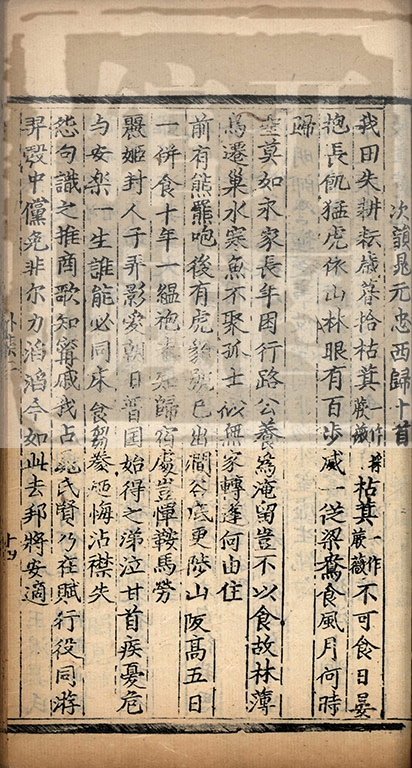 次韻晁元忠西歸十首
我田失耕耘歲暮拾枯萁一作採蕨薇枯萁一作蕨薇不可食日晏
抱長飢猛虎依山林眼有百步威一從梁鴦食風月何時
歸
莫如永家長年困行路公養爲淹留豈不以食故林薄
鳥遷巢水寒魚不聚孤士似無家轉逢何由住
前有熊羆咆後有虎豹號已出澗谷底更陟山阪髙五日
一併食十年一縕袍未知歸宿處豈憚鞍馬勞
麗姬封人子弄影愛朝日晉國始得之涕泣甘首疾憂危
与安樂一生誰能必同床食芻豢迺悔沾襟失
怨句識之推商歌知甯戚我占晁氏賢乃在賦行役同游
羿彀中儻免非尔力滔滔今如此去邦將安適
外集一
十四